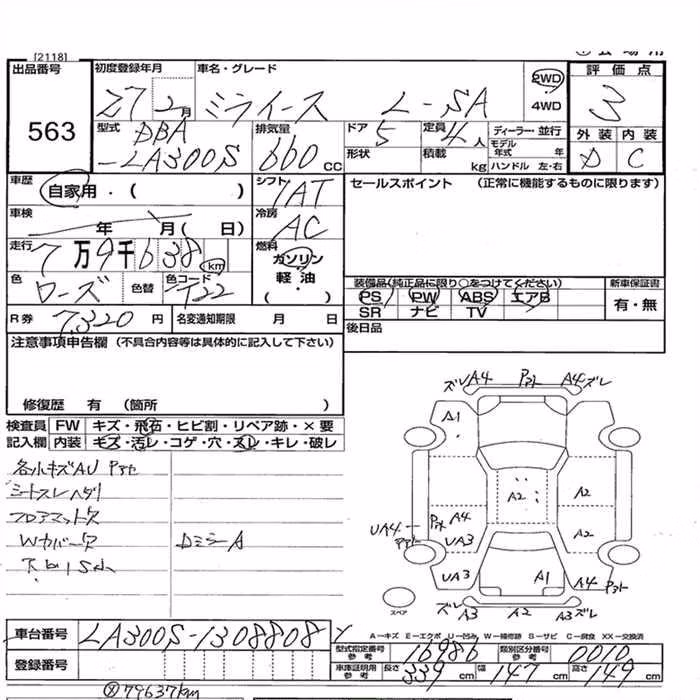 [2118]
出品番号 563
初度登録年月 27 2月
車名・グレード ミライース L-SA
2WD 4WD
評価点 3
外装 内装
D C
型式 DBA
-LA300S
排気量 660 CC
ドア 5
形状
定員 4 人
積載 kg
ディーラー・並行
モデル年式 年
ハンドル 左・右
車歴 自家用・( )
シフト 1AT
車検 年 月( 日)
冷房 AC
走行 7万9千638 km
燃料 ガソリン 軽油 ・( )
色 ローズ 色替 色コード T22
R券 7,320 円
名変通知期限 月 日
セールスポイント (正常に機能するものに限ります)
装備品(純正品に限り○をつけてください)
PS PW ABS エアB
SR ナビ TV
新車保証書 有・無
後日品
注意事項申告欄 (不具合内容等は具体的に記入して下さい)
修復歴 有 (箇所 )
検査員 FW キズ・飛石・ヒビ割・リペア跡・×要
記入欄 内装 キズ・汚レ・コゲ・穴・スレ・キレ・破レ
各小キズAU
シートスレヘタリ
フロアマット欠
Wカバー欠
DミラーA
ズレ A4 A4 ズレ
A1
A2 A2
UA4 A4 A2
UA3
UA3 A1 A4
ズレ A3 A2 A3 ズレ
スペア
A-キズ E-エクボ U-凹み W-補修跡 S-サビ C-腐食 XX-交換済
車台番号 LA300S-1308808
登録番号
型式指定番号 参考 16986
類別区分番号 参考 0010
車庫証明用 参考 長さ 339 cm 幅 147 cm 高さ 149 cm
79637km